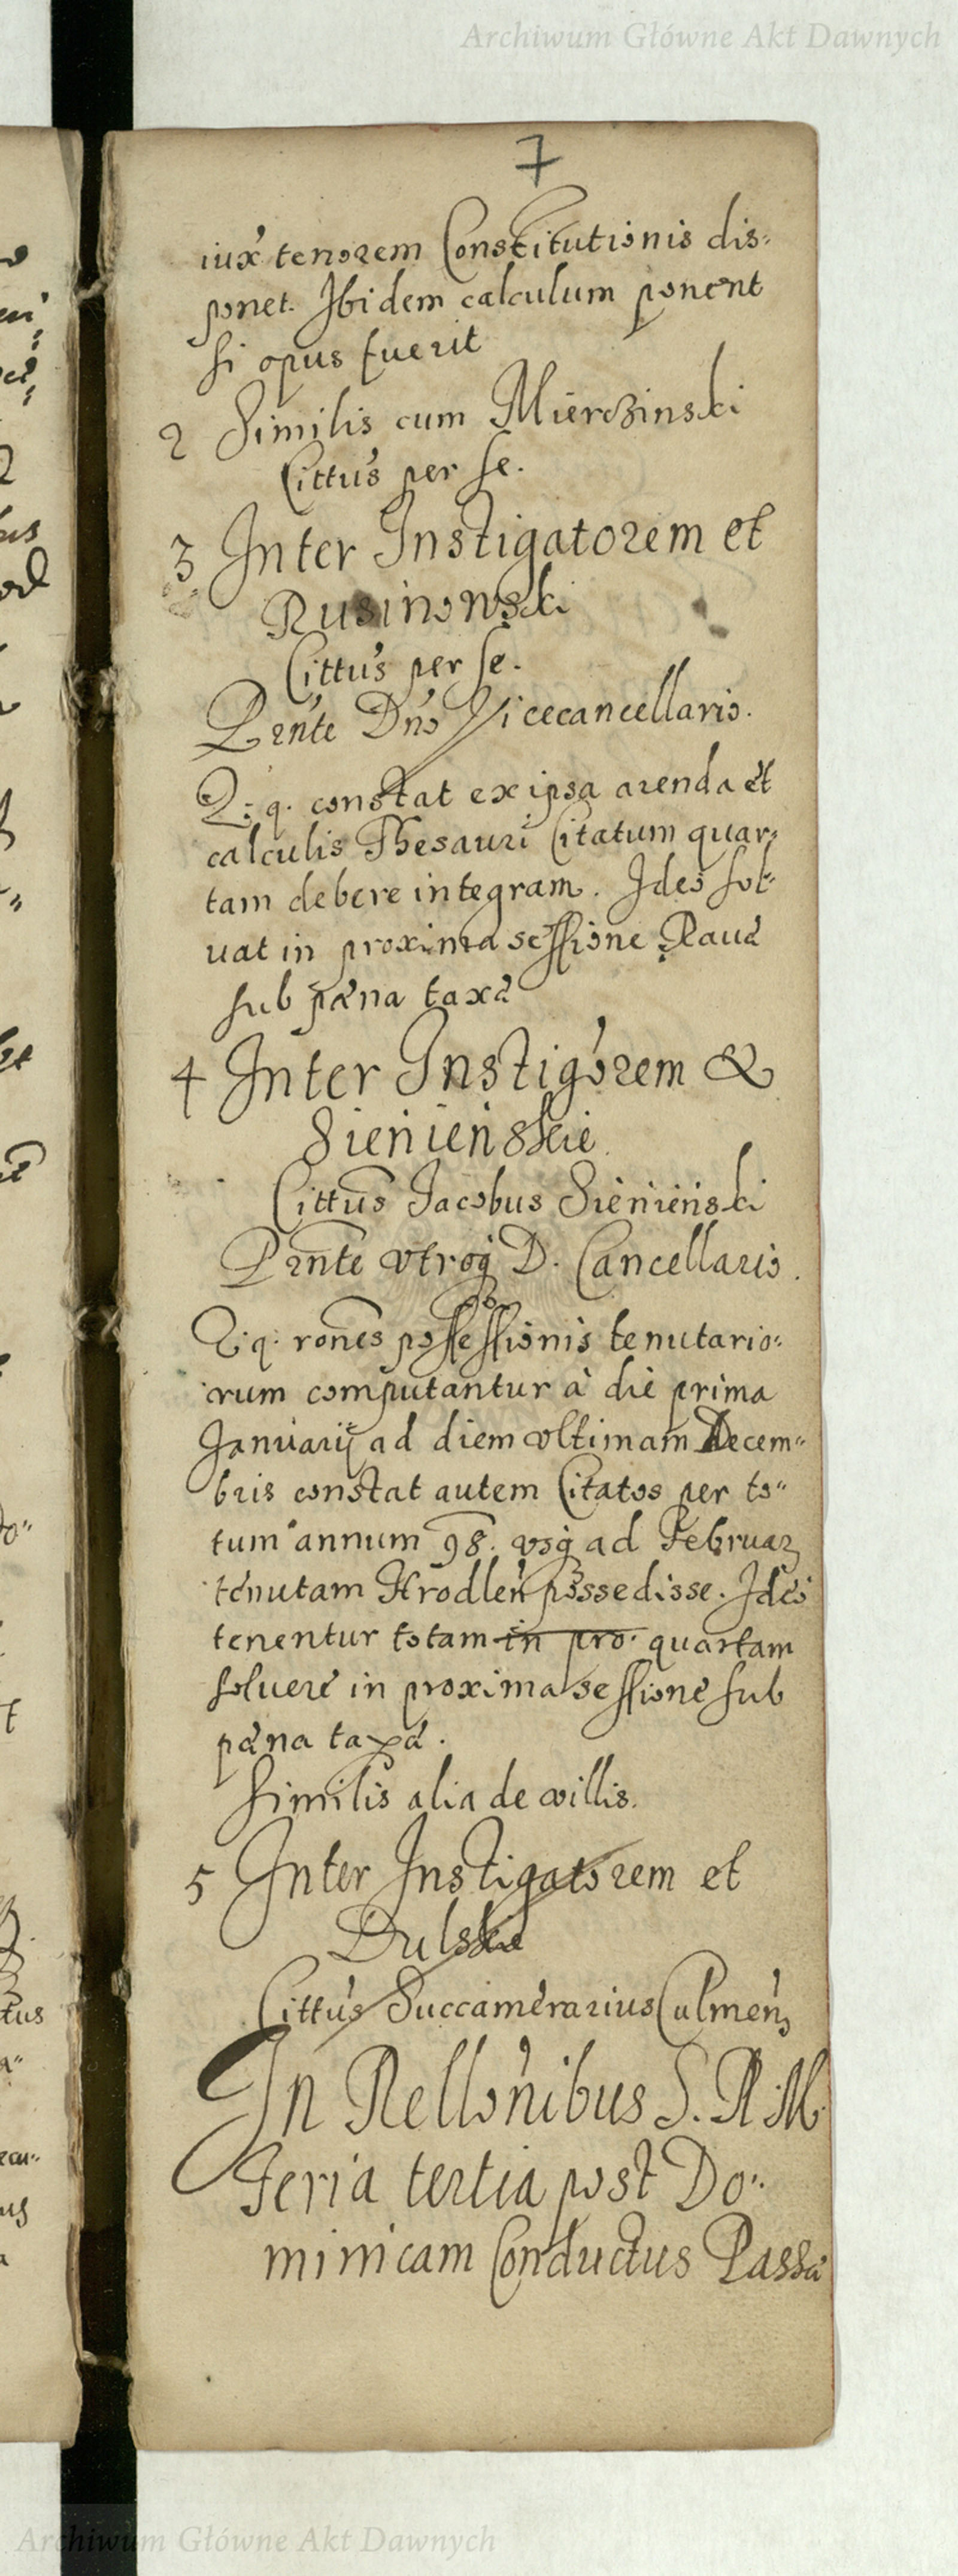 Archiwum Główne Akt Dawnych
7
iux' tenorem Constitutionis dis=
ponet. Ibidem calculum ponent
si opus fuerit
2 Similis cum Mierczinski
Cittus per se.
3 Inter Instigatorem et
Rusinowski
Cittus per se.
Prnte Dno Vicecancellario.
Q: q. constat ex ipsa arenda et
calculis Thesauri Citatum quar=
tam debere integram. Ideo sol=
uat in proxima sessione Raua
sub pæna taxa
4 Inter Instigorem &
Sienienskie.
Cittus Jacobus Sienienski
Prnte vtroq D. Cancellario.
Q: q. rones possessionis tenutario=
rum computantur à die prima
Januarij ad diem vltimam Decem=
bris constat autem Citatos per to=
tum annum 98. vsq ad Februar
tenutam Hrodlen possedisse. Ideo
tenentur totam in pro. quartam
soluere in proxima sessione sub
pæna taxa.
Similis alia de villis.
5 Inter Instigatorem et
Dulskie
Cittus Succamerarius Culmen
In Rellonibus S. R. M.
Feria tertia post Do=
minicam Conductus Passa
Archiwum Główne Akt Dawnych